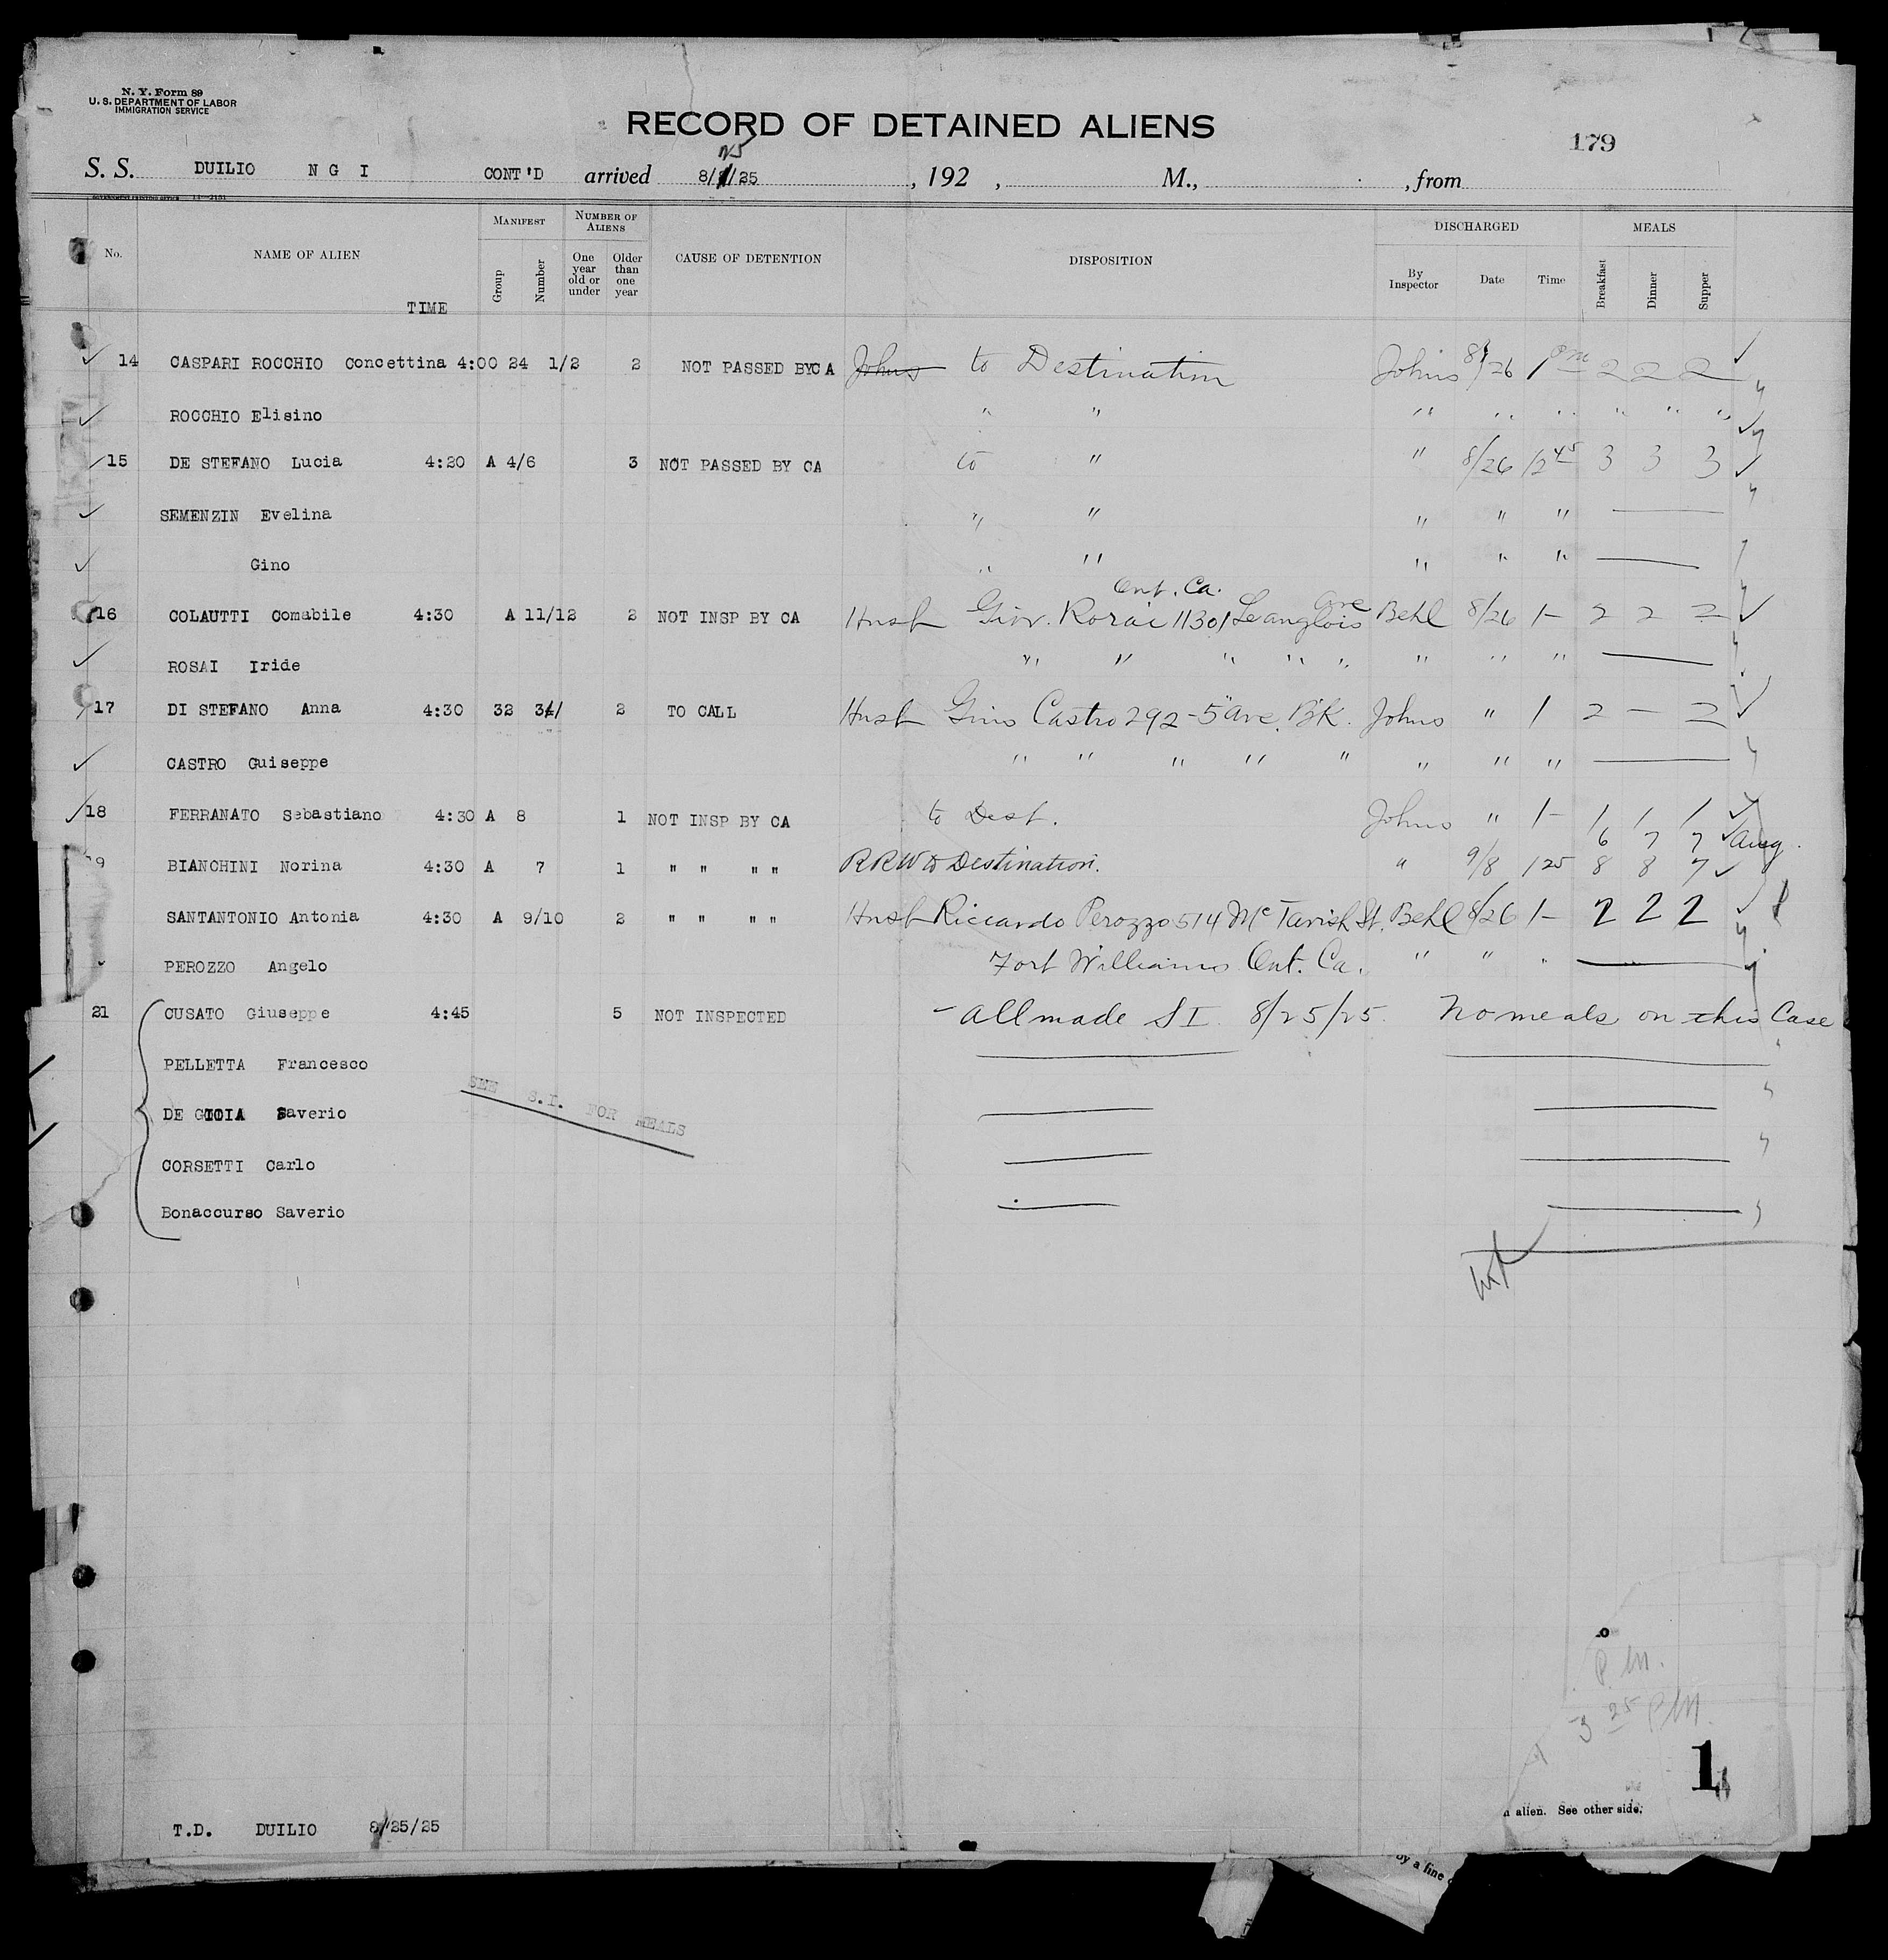 N. Y. Form 89
U. S. DEPARTMENT OF LABOR
IMMIGRATION SERVICE
RECORD OF DETAINED ALIENS
179
S. S. DUILIO N G I CONT'D arrived 8/25/25, 192 , M., , from
No. NAME OF ALIEN TIME MANIFEST Group Number NUMBER OF ALIENS One year old or under Older than one year CAUSE OF DETENTION DISPOSITION DISCHARGED By Inspector Date Time MEALS Breakfast Dinner Supper
14 CASPARI ROCCHIO Concettina 4:00 24 1/2 2 NOT PASSED BYCA Johns to Destination Johns 8/26 1 pm 2 2 2
ROCCHIO Elisino " " " " " " " "
15 DE STEFANO Lucia 4:20 A 4/6 3 NOT PASSED BY CA to " " 8/26 12 45 3 3 3
SEMENZIN Evelina " " " " "
Gino " " " " "
Ont. Ca.
16 COLAUTTI Comabile 4:30 A 11/12 2 NOT INSP BY CA Husb Giov. Rorai 1130 Leanglois Ave Behl 8/26 1- 2 2 2
ROSAI Iride " " " " " " " "
17 DI STEFANO Anna 4:30 32 3/4 2 TO CALL Husb Gino Castro 292-5" Ave. B'K. Johns " 1 2 — 2
CASTRO Guiseppe " " " " " " " "
18 FERRANATO Sebastiano 4:30 A 8 1 NOT INSP BY CA to Dest. Johns " 1- 1 1 1
6 7 7 Aug.
19 BIANCHINI Norina 4:30 A 7 1 " " " " RRW to Destination. " 9/8 1 25 8 8 7
SANTANTONIO Antonia 4:30 A 9/10 2 " " " " Husb Riccardo Perozzo 514 McTavish St. Behl 8/26 1- 2 2 2
PEROZZO Angelo Fort Williams Ont. Ca. " " "
21 CUSATO Giuseppe 4:45 5 NOT INSPECTED - all made S I. 8/25/25. No meals on this Case
PELLETTA Francesco
SEE S.I. FOR MEALS
DE GIOIA Saverio
CORSETTI Carlo
Bonaccurso Saverio
P.M.
3 25 PM.
1
alien. See other side.
T.D. DUILIO 8/25/25
by a fine